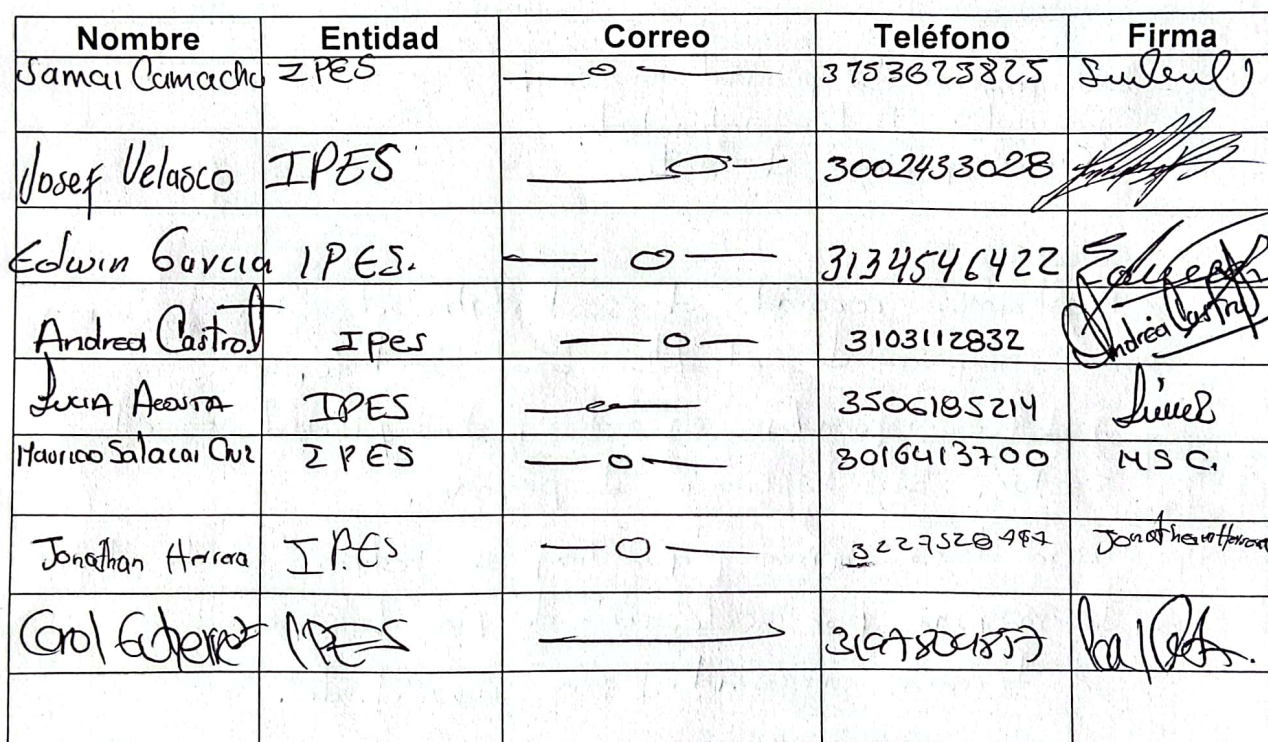 Nombre Entidad Correo Teléfono Firma
Samai Camacho IPES 3153623825
Yosef Velasco IPES 3002433028
Edwin Garcia IPES. 3134546422
Andrea Castro IPes 3103112832 Andrea Castro
Lucia Acosta IPES 3506185214
Mauricio Salacar Cruz IPES 3016413700 MSC.
Jonathan Herrera I.P.ES Jonathan Herrera
Carol Gutierrez IPES